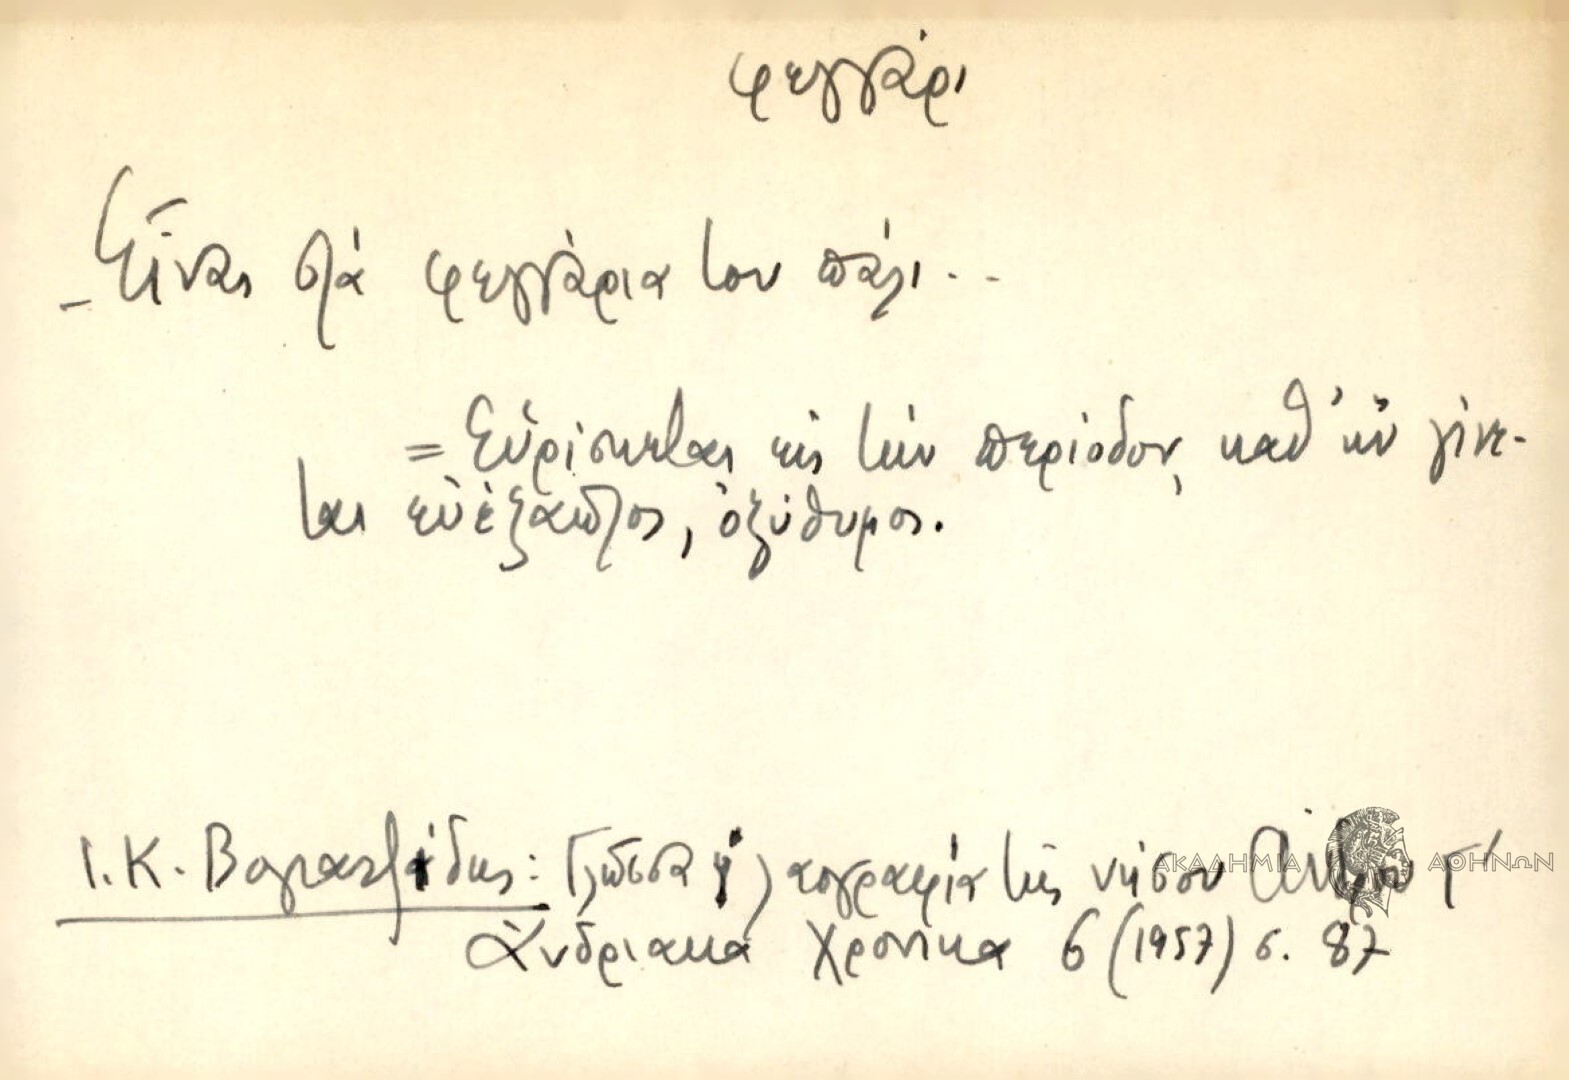 φεγγάρι
– Εἶναι στὰ φεγγάρια του πάλι...
= Εὑρίσκεται εἰς τὴν περίοδον, καθ' ἣν γίνε-
ται εὐέξαπτος, ὀξύθυμος.
Ι. Κ. Βογιατζίδης: Γλῶσσα καὶ λαογραφία τῆς νήσου Ἄνδρου Γ΄
Ἀνδριακὰ Χρονικὰ 6 (1957) σ. 87
ΑΚΑΔΗΜΙΑ ΑΘΗΝΩΝ